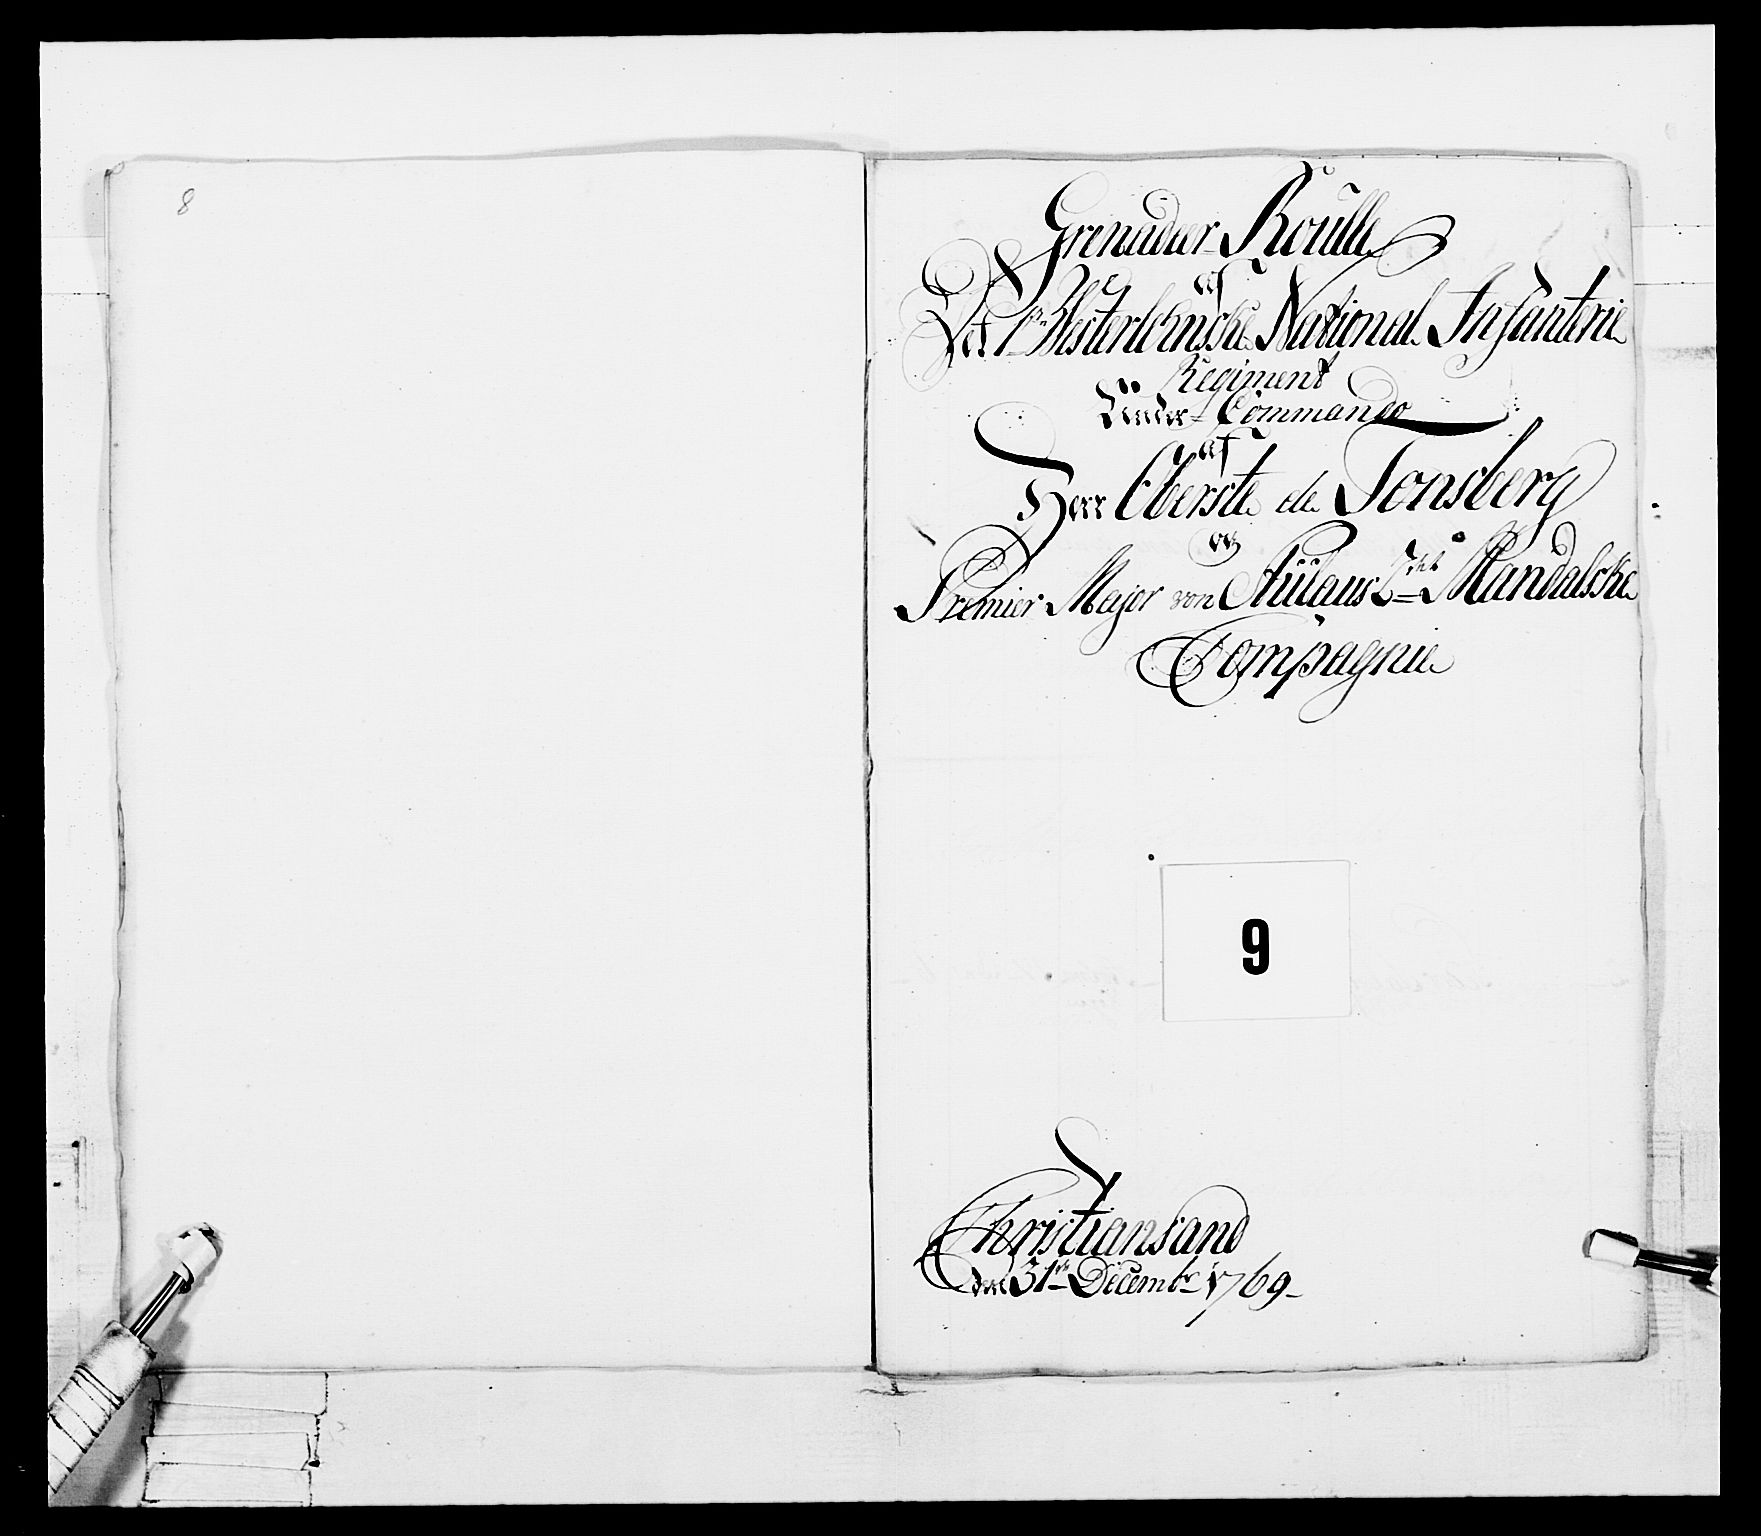 8
Grenadeer-Roulle
af
Det 1te Westerlehnske National Infanterie
Regiment
Under Commando
af
Herr Oberste de Tonsberg
og
Premier Major von 2det Mandalske
Compagnie
9
Christiansand
den 31te Decembr 1769